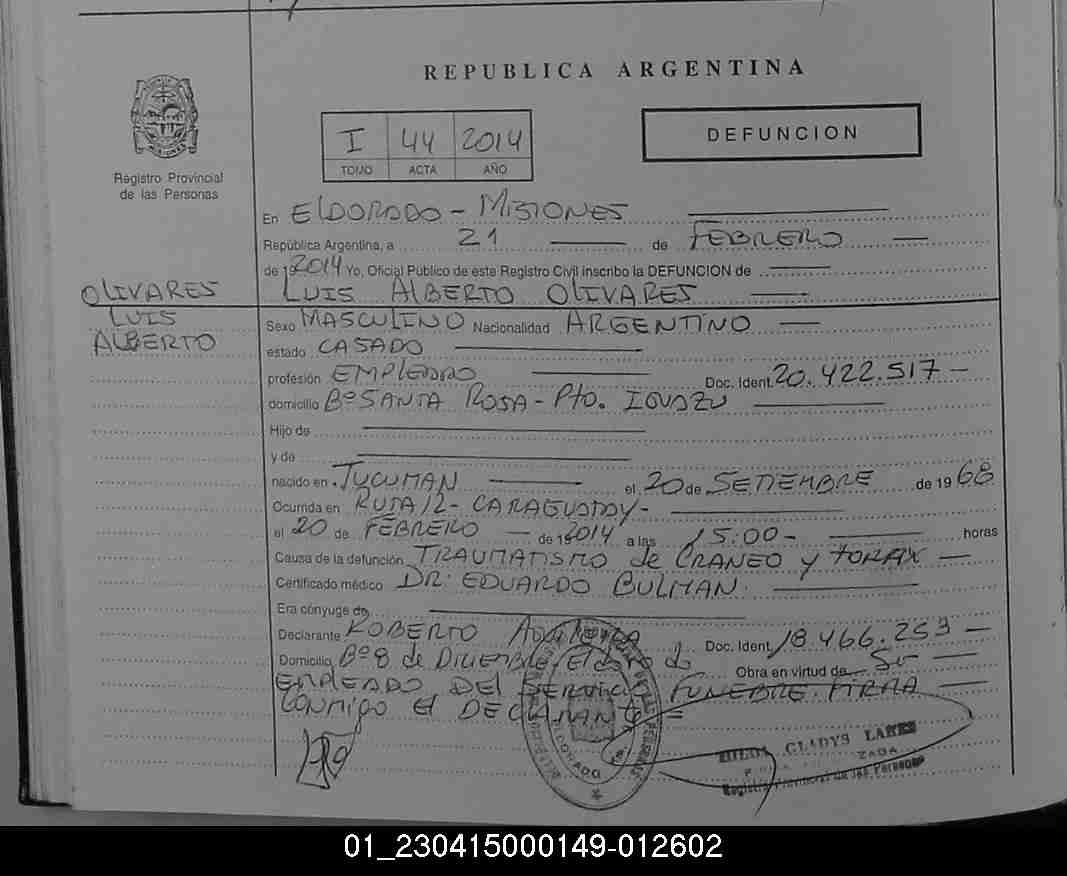 REPUBLICA ARGENTINA
I 44 2014
TOMO ACTA AÑO
DEFUNCION
Registro Provincial
de las Personas
En ELDORADO - MISIONES
República Argentina, a 21 de FEBRERO
de 19 2014 Yo, Oficial Público de este Registro Civil inscribo la DEFUNCION de
OLIVARES
LUIS
ALBERTO
LUIS ALBERTO OLIVARES
Sexo MASCULINO Nacionalidad ARGENTINO
estado CASADO
profesión EMPLEADO Doc. Ident. 20.422.517 -
domicilio Bº SANTA ROSA - Pto. IGUAZU
Hijo de
y de
nacido en TUCUMAN el 20 de SETIEMBRE de 19 68
Ocurrida en RUTA 12 - CARAGUATAY -
el 20 de FEBRERO de 19 2014 a las 15:00 - horas
Causa de la defunción TRAUMATISMO de CRANEO y TORAX
Certificado médico DR: EDUARDO BULMAN.
Era cónyuge de
Declarante ROBERTO Doc. Ident. 18.466.253 -
Domicilio Bº 8 de DICIEMBRE, Eldorado Obra en virtud de Su
EMPLEADO DEL SERVICIO FUNEBRE. FIRMA
CONMIGO El DECLARANTE =
ELDORADO
HILDA GLADYS
Registro Provincial de las Personas
01_230415000149-012602